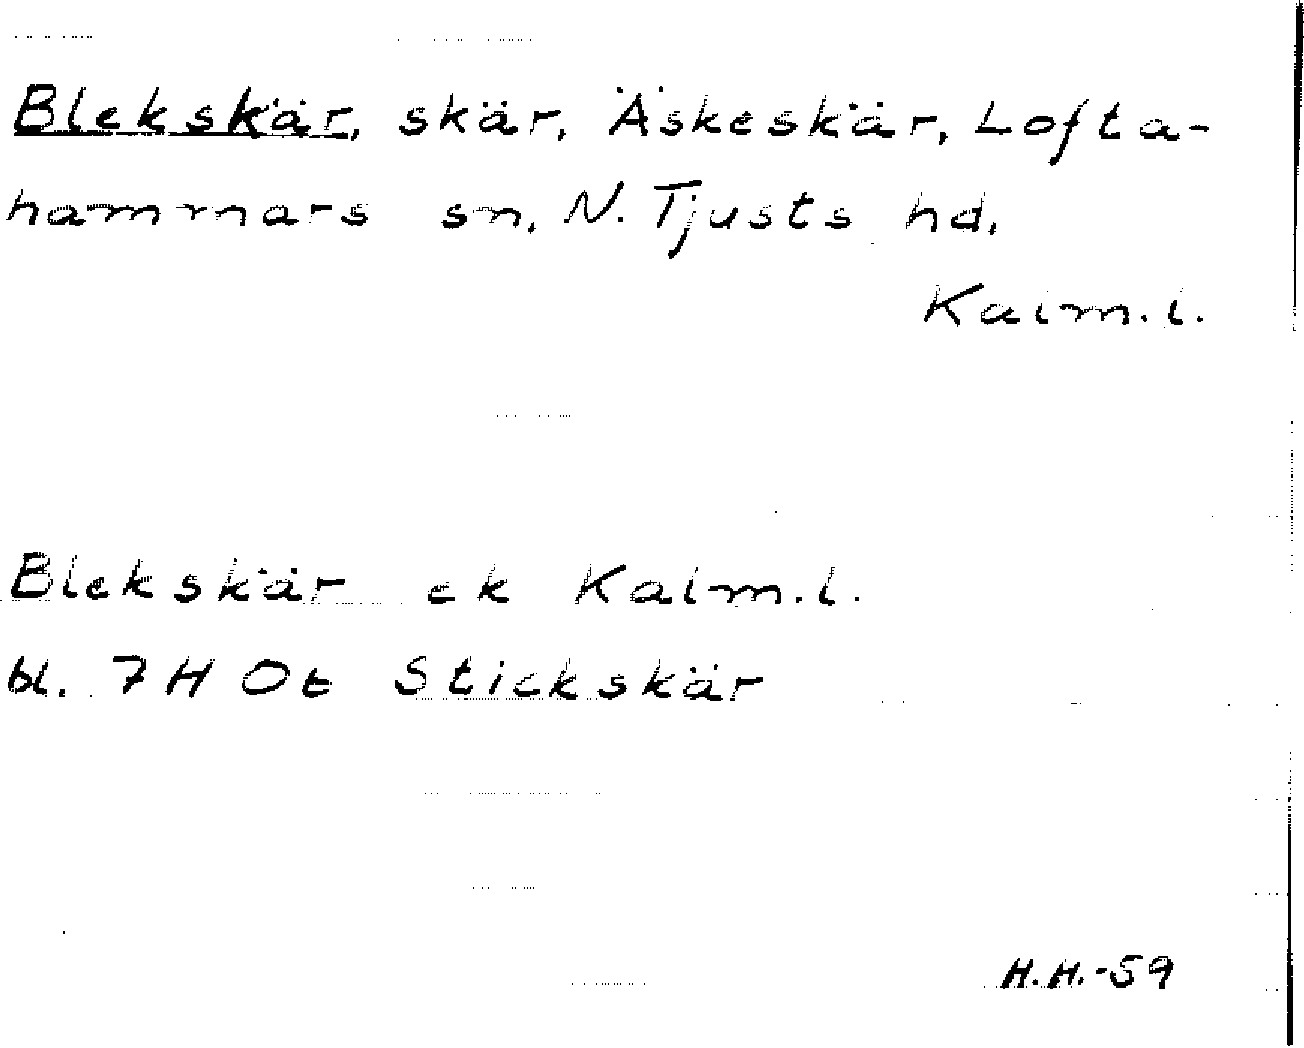 Blekskär, skär, Äskeskär, Lofta-
hammars sn, N. Tjusts hd,
Kalm.l.
Blekskär ek Kalm.l.
bl. 7H Ot Stickskär
H.H.-59